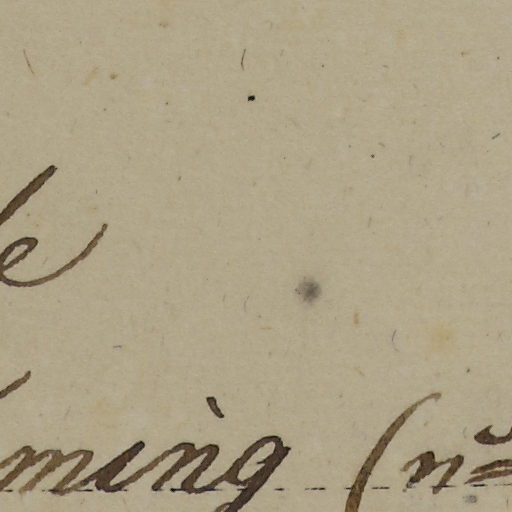 le
ming (n